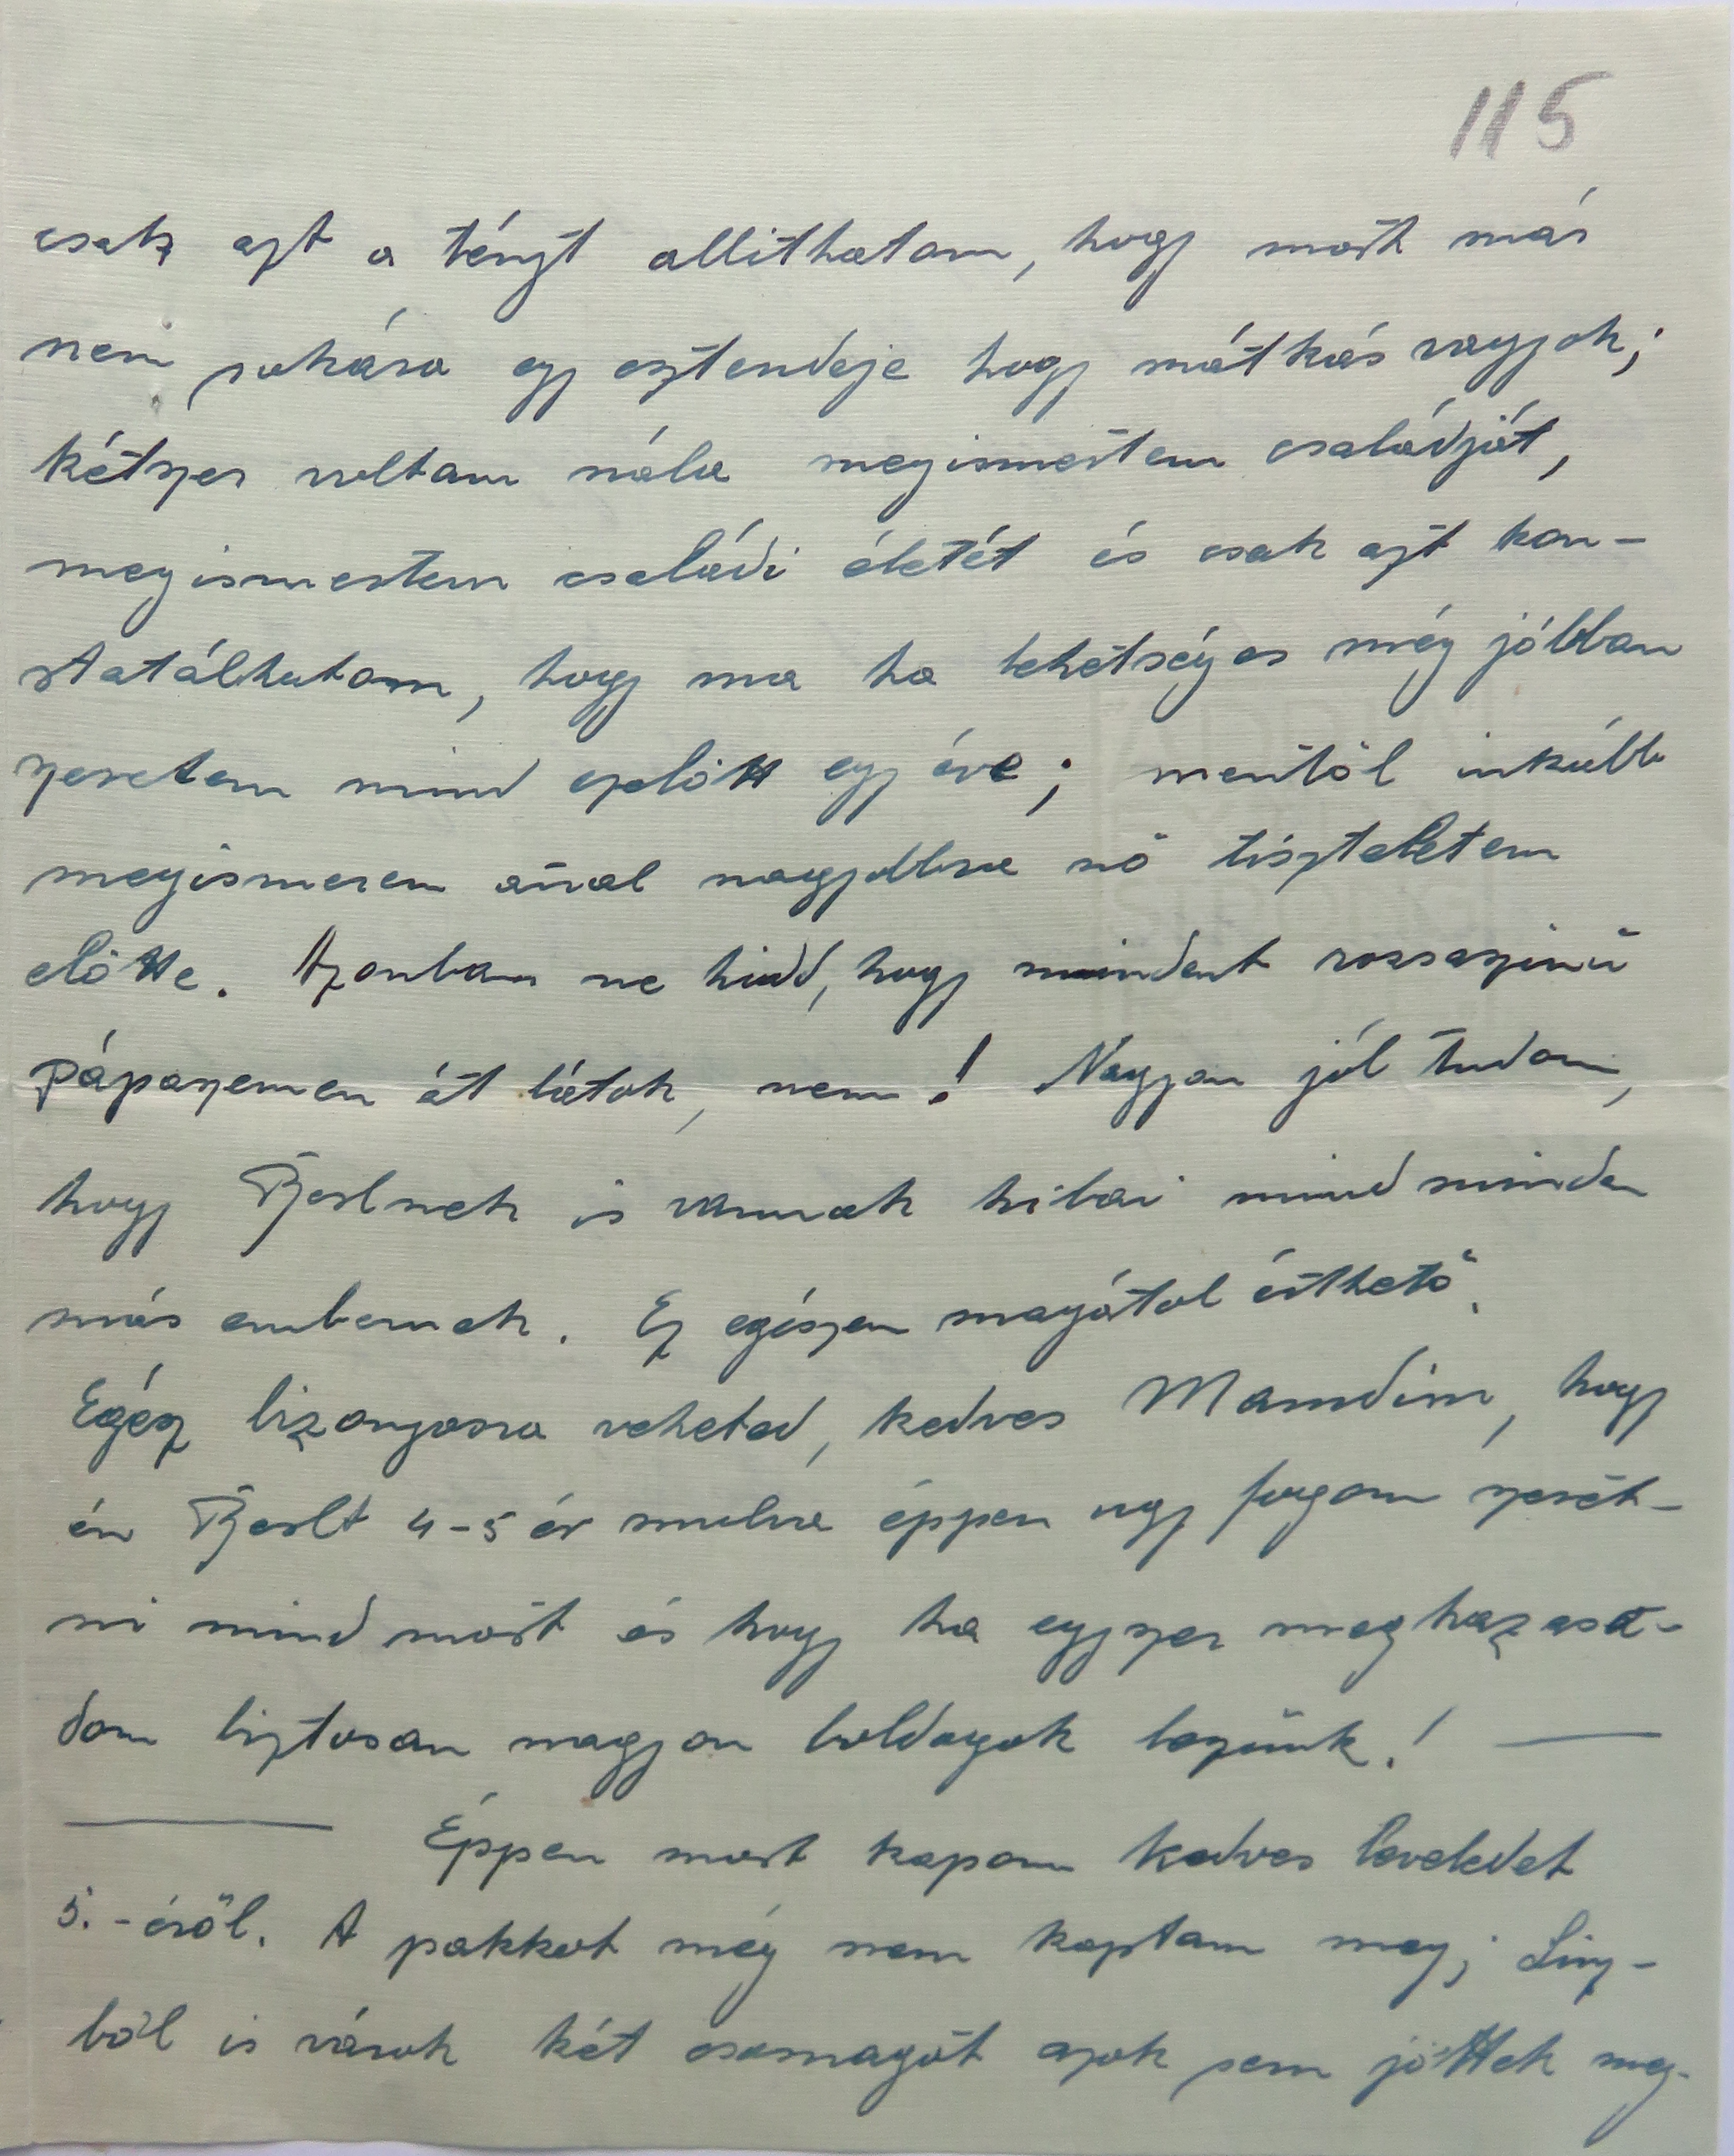 115
csak azt a tényt allithatom, hogy most már
nem sokára egy esztendeje hogy mátkás vagyok;
kétszer voltam nála megismertem családját,
megismertem családi életét és csak azt kon-
statálhatom, hogy ma ha lehetséges még jóbban
szeretem mind ezelőtt egy éve; mentöl inkább
megismerem annal nagyobbra nö tiszteletem
elötte. Azonban ne hidd, hogy mindent rozsaszinü
pápaszemen át látok, nem! Nagyon jól tudom,
hogy is vannak hibai mind minden
más embernek. Ez egészen magátol érthetö.
Egész bizonyosra veheted, kedves Mamdim, hogy
én 4-5 év mulva éppen ugy fogom szeret-
ni mind most és hogy ha egyszer meghazasa-
dom biztosan nagyon boldogok leszünk! —
— Éppen most kapom kedves leveledet
5.-éröl. A pakkot még nem kaptam meg; Linz-
böl is várok két csomagot azok sem jöttek meg.